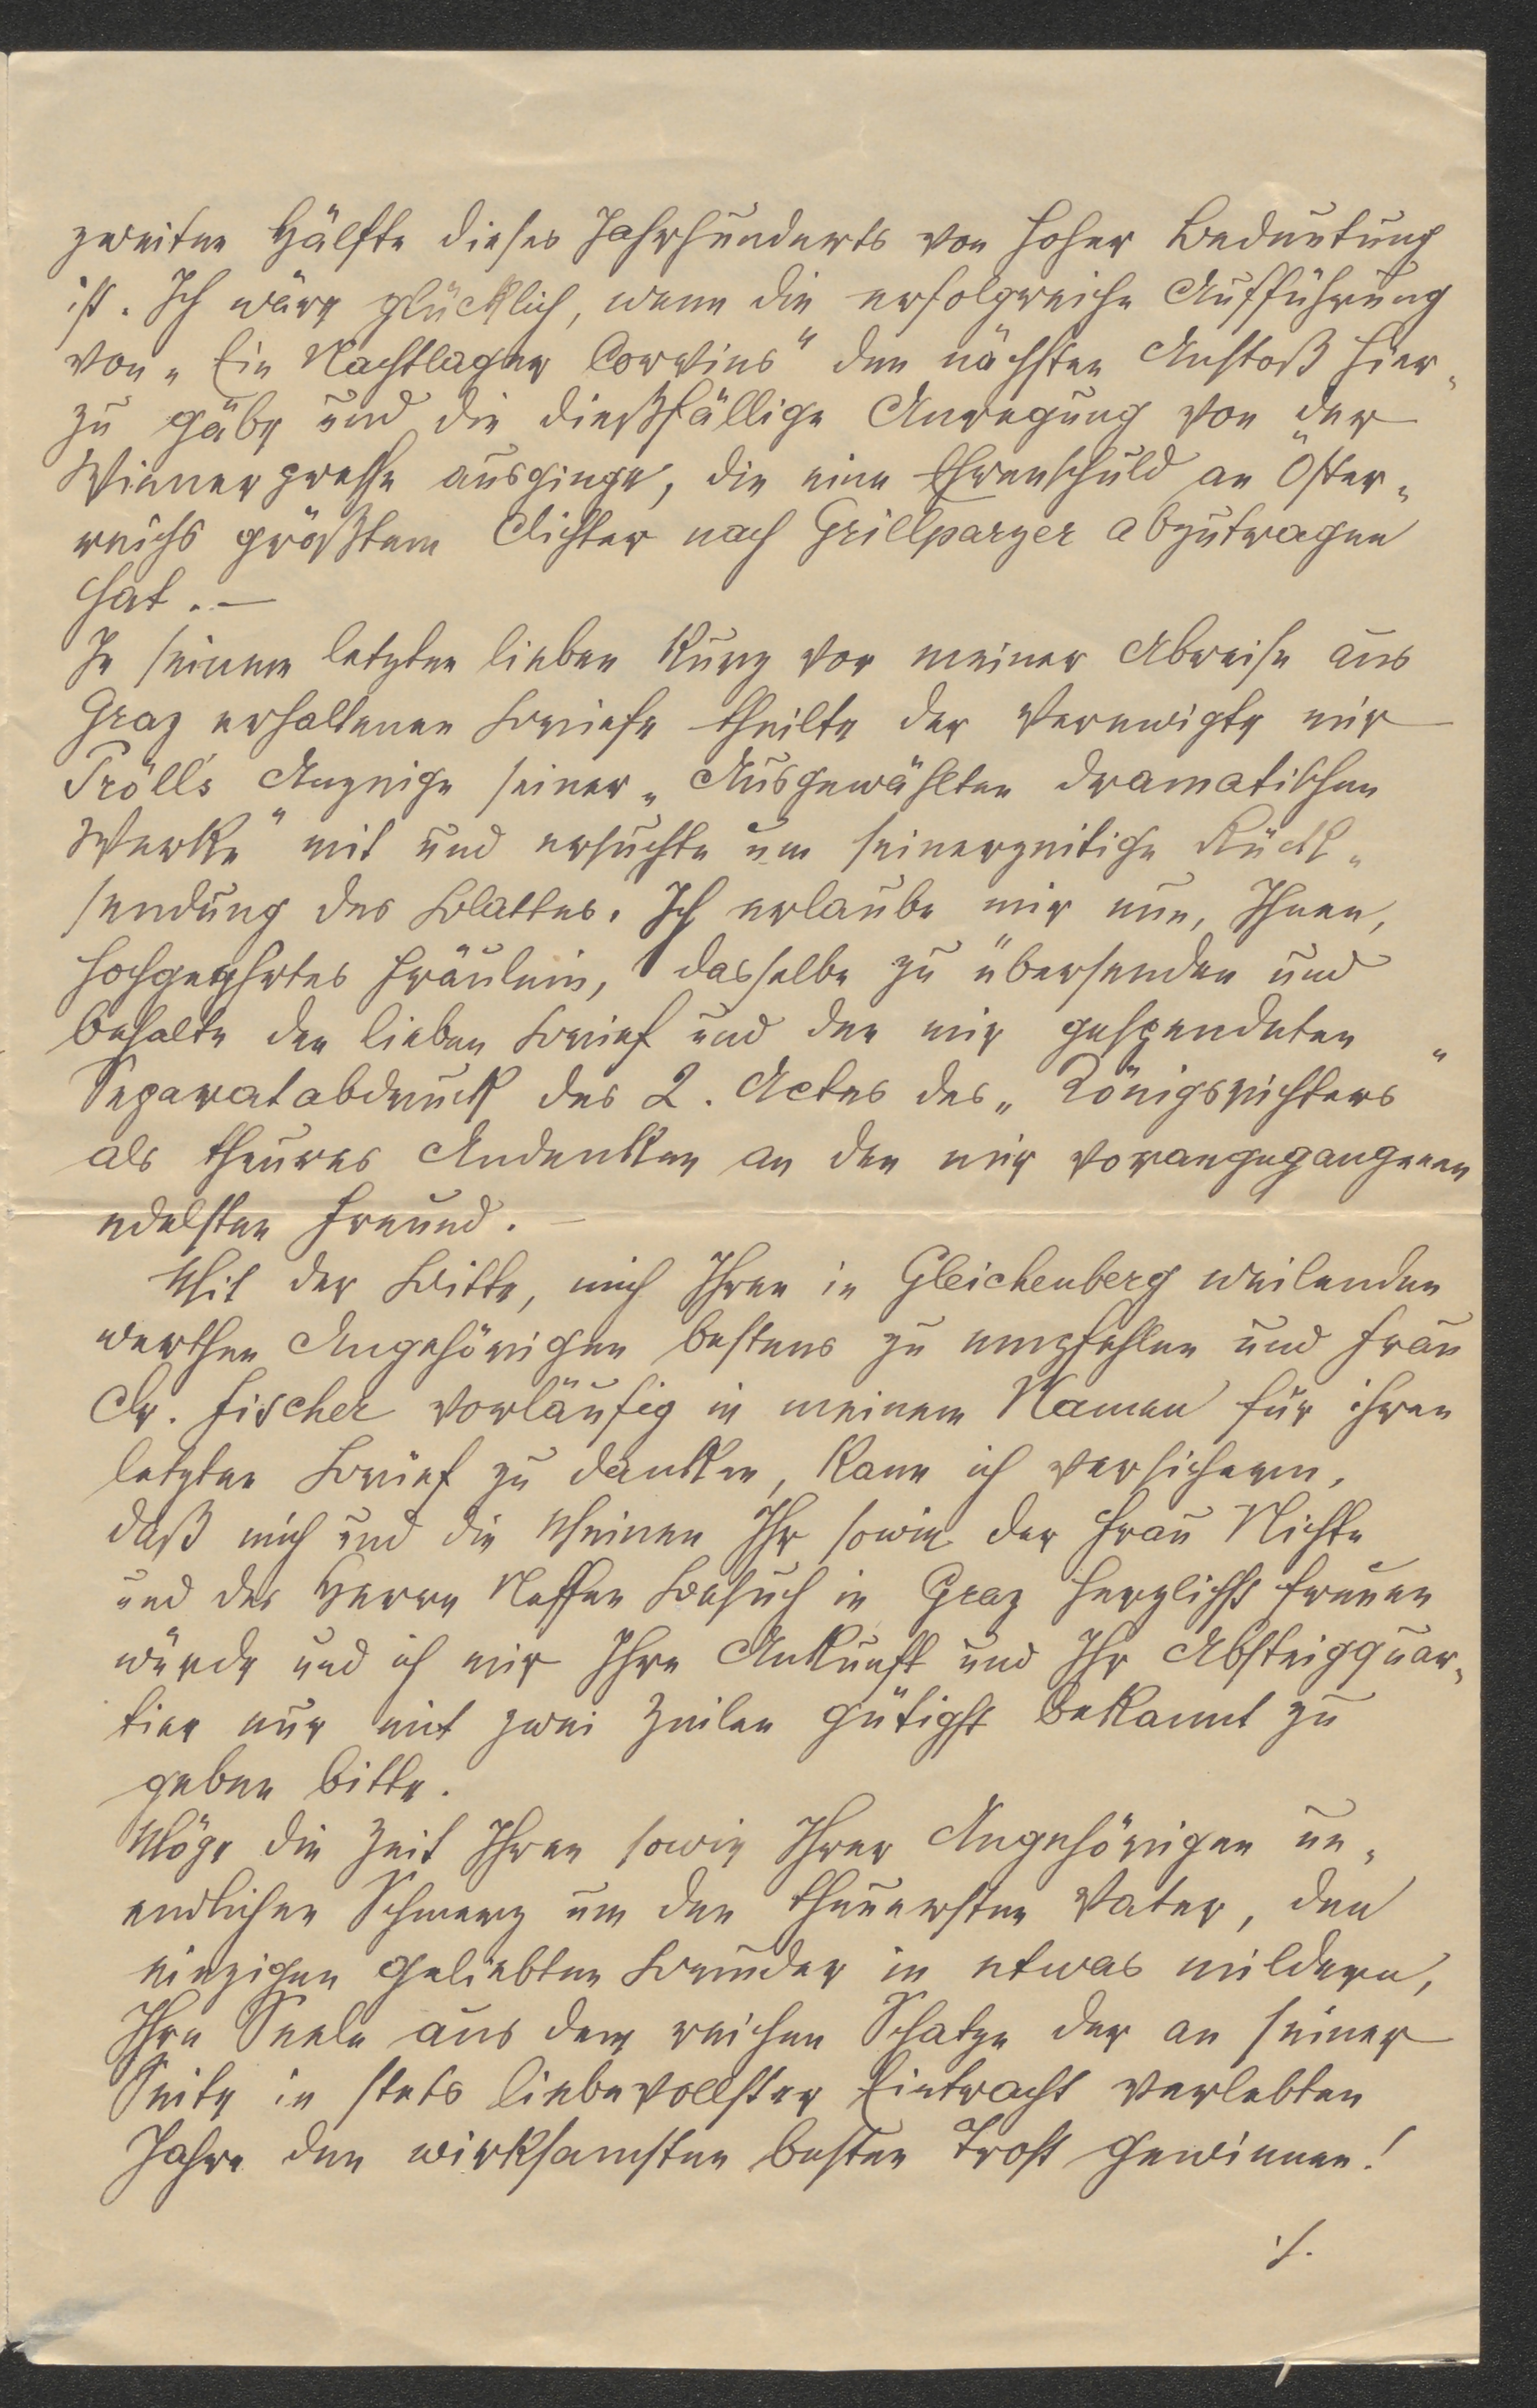 zweiten Hälfte dieses Jahrhunderts von hoher Bedeutung
ist. Ich wäre glücklich, wenn die erfolgreiche Aufführung
von „Ein Nachtlager Corvins" den nächsten Anstoß hier„
zu gäbe und die dießfällige Anregung von der
Wienerpresse ausginge, die eine Ehrenschuld an Öster„
reichs größtem Dichter nach Grillparzer abzutragen
hat. —
In seinem letzten lieben kurz vor meiner Abreise aus
Graz erhaltenen Briefe theilte der Verewigte mir
Pröll's Anzeige seiner „Ausgewählten dramatischen
Werke" mit und ersuchte um seinerzeitige Rück„
sendung des Blattes. Ich erlaube mir nun, Ihnen,
hochgeehrtes Fräulein, dasselbe zu übersenden und
behalte den lieben Brief und den mir gespendeten
Separatabdruck des 2. Actes des „Königsrichters"
als theures Andenken an den mir vorangegangenen
edelsten Freund. —
Mit der Bitte, mich Ihren in Gleichenberg weilenden
werthen Angehörigen bestens zu empfehlen und Frau
Dr. Fischer vorläufig in meinem Namen für ihren
letzten Brief zu danken, kann ich versichern,
daß mich und die Meinen Ihr sowie der Frau Nichte
und des Herrn Neffen Besuch in Graz herzlichst freuen
würde und ich mir Ihre Ankunft und Ihr Absteigquar„
tier nur mit zwei Zeilen gütigst bekannt zu
geben bitte.
Möge die Zeit Ihren sowie Ihrer Angehörigen un„
endlichen Schmerz um den theuersten Vater, den
einzigen geliebten Bruder in etwas mildern,
Ihre Seele aus dem reichen Schatze der an seiner
Seite in stets liebevollster Eintracht verlebten
Jahre den wirksamsten besten Trost gewinnen!
./.